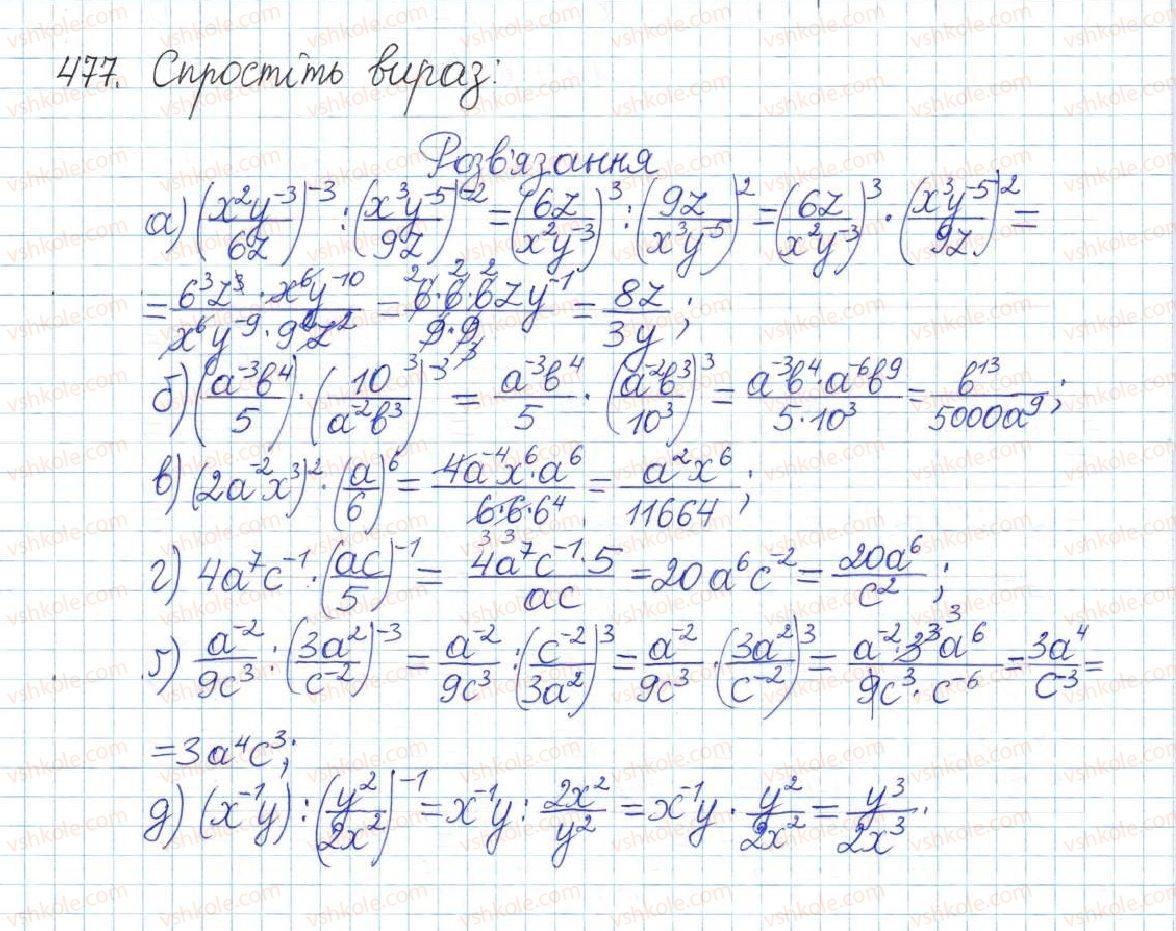 477. Спростіть вираз:
Розв'язання
а) (x²y⁻³/6z)⁻³ : (x³y⁻⁵/9z)⁻² = (6z/x²y⁻³)³ : (9z/x³y⁻⁵)² = (6z/x²y⁻³)³ · (x³y⁻⁵/9z)² =
= 6³z³ · x⁶y⁻¹⁰/x⁶y⁻⁹ · 9²z² = 6·6·6zy⁻¹/9·9 = 8z/3y ;
б) (a⁻³b⁴/5) · (10³/a⁻²b³)⁻³ = a⁻³b⁴/5 · (a⁻²b³/10³)³ = a⁻³b⁴·a⁻⁶b⁹/5·10³ = b¹³/5000a⁹ ;
в) (2a⁻²x³)² · (a/6)⁶ = 4a⁻⁴x⁶·a⁶/6·6·6⁴ = a²x⁶/11664 ;
г) 4a⁷c⁻¹ · (ac/5)⁻¹ = 4a⁷c⁻¹·5/ac = 20a⁶c⁻² = 20a⁶/c² ;
ґ) a⁻²/9c³ : (3a²/c⁻²)⁻³ = a⁻²/9c³ : (c⁻²/3a²)³ = a⁻²/9c³ · (3a²/c⁻²)³ = a⁻²·3³a⁶/9c³·c⁻⁶ = 3a⁴/c⁻³ =
= 3a⁴c³;
д) (x⁻¹y) : (y²/2x²)⁻¹ = x⁻¹y : 2x²/y² = x⁻¹y · y²/2x² = y³/2x³ .
vshkole.com